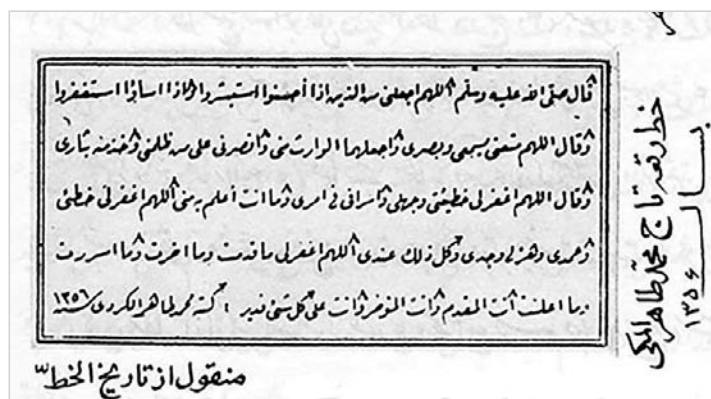 قال صلى الله عليه وسلم اللهم اجعلنى من الذين اذا أحسنوا استبشروا واذا اساؤا استغفروا
وقال اللهم متعنى بسمعى وبصرى واجعلهما الوارث منى وانصرنى على من ظلمنى وخذ منه بثارى
وقال اللهم اغفر لى خطيئتى وجهلى واسرافى فى امرى وما انت أعلم به منى اللهم اغفر لى خطئى
وعمدى وهزلى وجدى وكل ذلك عندى اللهم اغفر لى ما قدمت وما اخرت وما اسررت
وما اعلنت أنت المقدم وانت المؤخر وانت على كل شئ قدير كتبه محمد طاهر الكردى سنة ١٣٥٦
خط رقعه تاج محمد طاهر المکی
بسال ١٣٥۶
منقول از تاریخ الخط